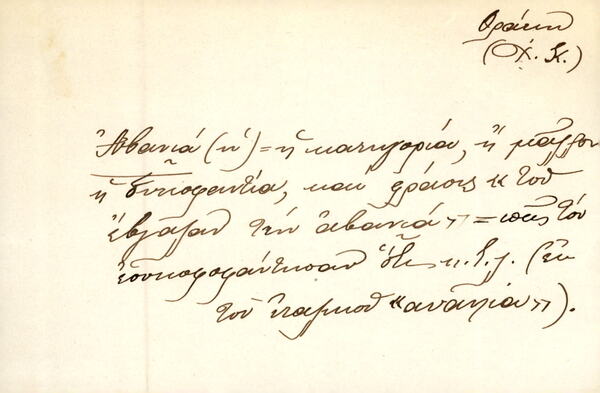 Θράκη
(Ὀχ. Κ.)
Ἀβανιά (ἡ) = ἡ κατηγορία, ἢ μᾶλλον
ἡ συκοφαντία, και φράσις « τοῦ
ἔβγαλαν τὴν ἀβανιά » = πῶς τὸν
ἐσυκοφάντησαν ὅτι κ.τ.λ. (ἐκ
τοῦ ἰταλικοῦ « »).